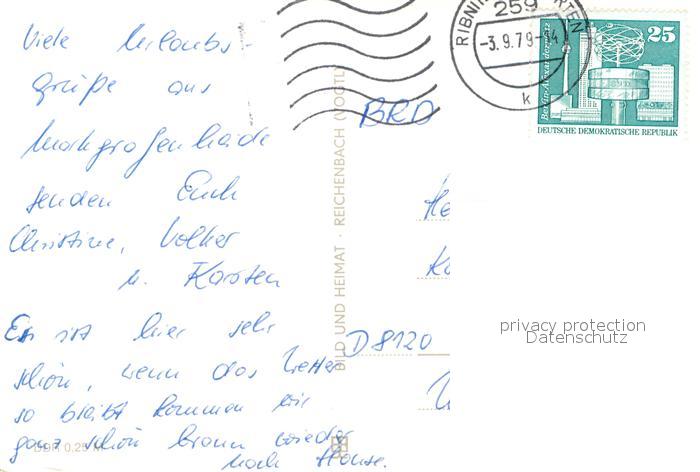 Viele Urlaubs-
grüße aus
Markgrafenheide
senden Euch
Christine, Volker
u. Karsten
Es ist hier sehr
schön, wenn das Wetter
so bleibt kommen wir
ganz schön braun wieder
nach Hause.
DDR 0.25 M
BILD UND HEIMAT · REICHENBACH (VOGTL
259
RIBNITZ
-3.9.79-14
k
25
Berlin, Alexanderplatz
DEUTSCHE DEMOKRATISCHE REPUBLIK
BRD
He
Ko
D 8120
privacy protection
Datenschutz